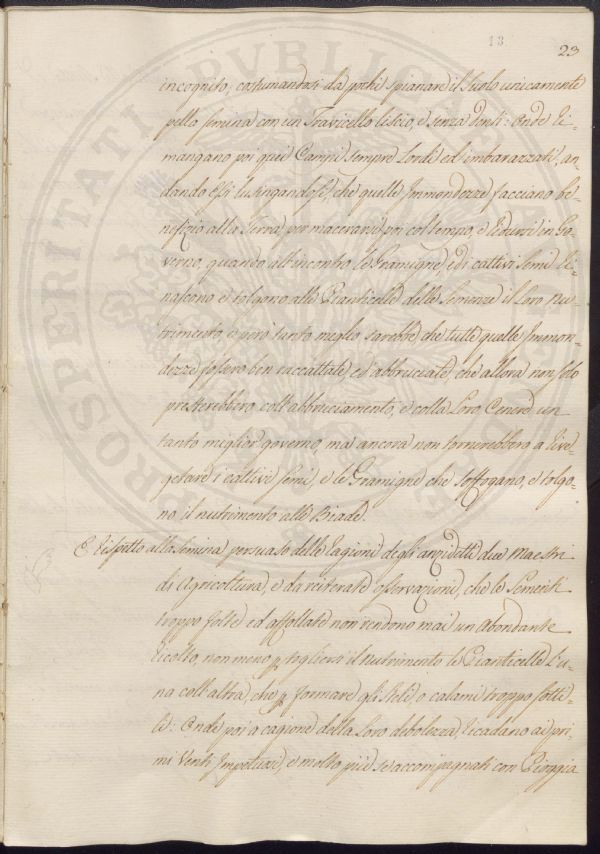 13
23
incognito, costumandosi da pochi spianare il Suolo unicamente
pella semina con un Travicello liscio, e senza denti: Onde Ri-
mangano poi quei Campi sempre Lordi ed imbarazzati, an-
dando Essi lusingandosi, che quelle Immondezze facciano be-
nefizio alla Terra, per macerarsi poi col tempo, e Ridursi in Go-
verno, quando all'incontro le Gramigne, ed i cattivi Semi Ri-
nascono e tolgono alle Pianticelle delle Semenze il Loro Nu-
trimento, e però tanto meglio sarebbe, che tutte quelle Immon-
dezze fossero ben raccattate, ed abbruciate, che allora non solo
presterebbero coll'abbruciamento, e colla Loro Cenere un
tanto miglior governo, ma ancora non tornerebbero a Rive-
getare i cattivi Semi, e le Gramigne che soffogano, e tolgo-
no il nutrimento alle Biade.
E Rispetto alla Semina persuaso delle Ragioni degli anzidetti due Maestri
di Agricoltura, e da reiterate osservazioni, che le Semente
troppo folte ed affollate non rendono mai un Abondante
Ricolto, non meno p togliersi il Nutrimento le Pianticelle l'u-
na coll'altra, che p formare gli Steli o calami troppo sotti-
li: Onde poi a cagione della Loro debolezza, Ricadano ai pri-
mi Venti Impetuosi, e molto più se accompagnati con Pioggia
PROSPERITATI PVBLICAE